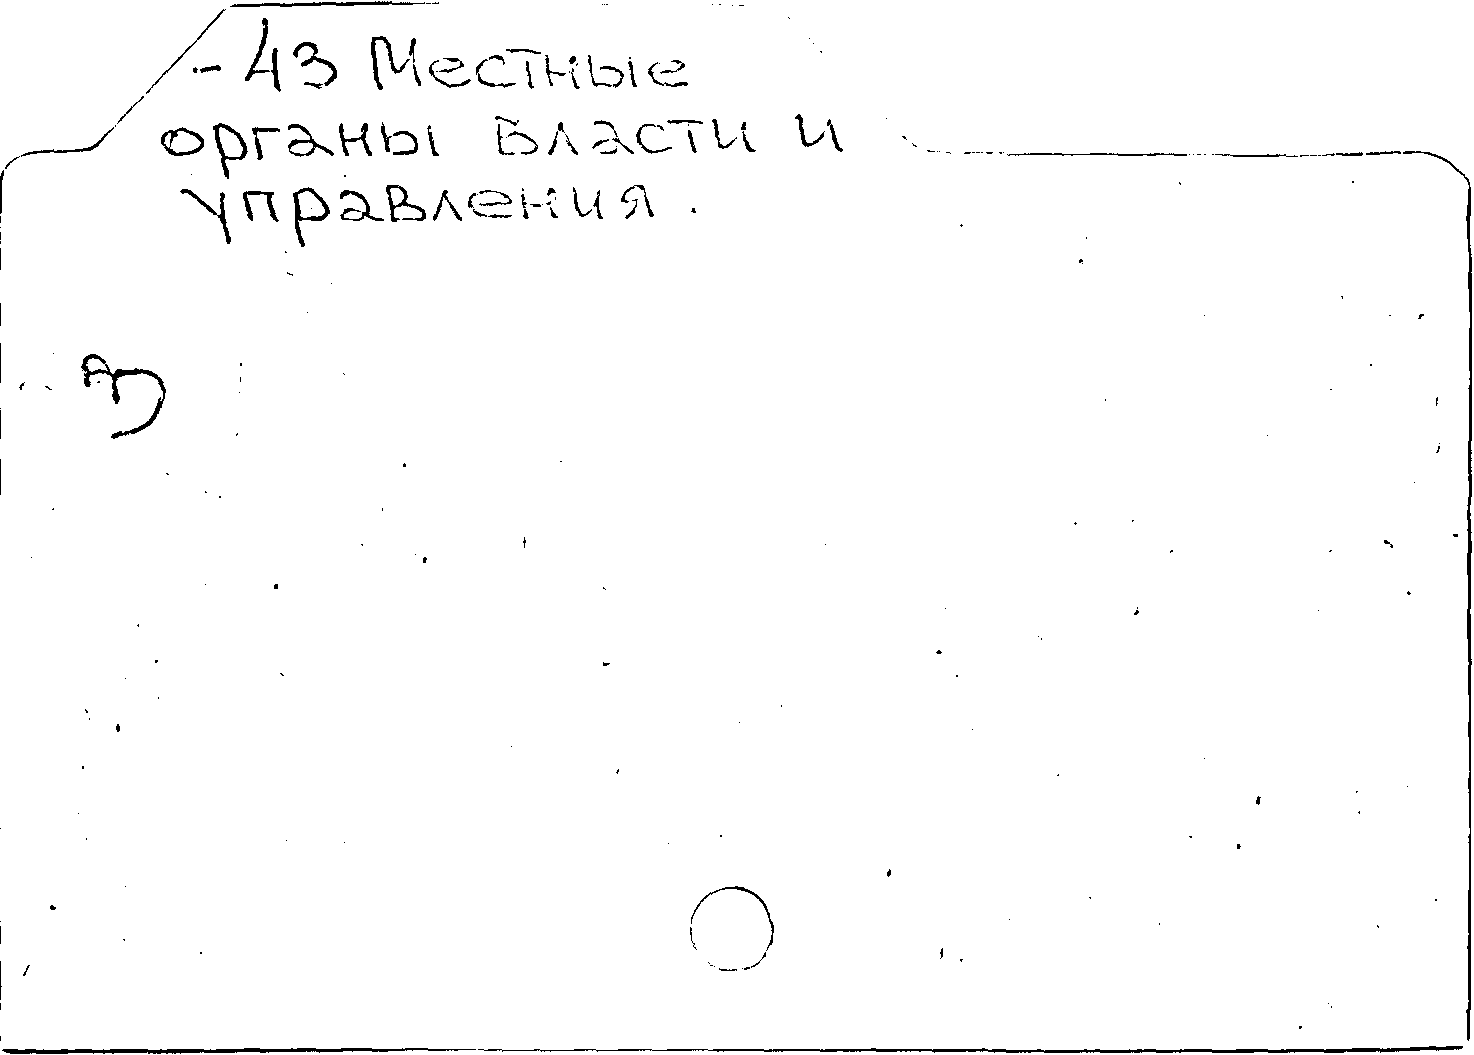 - 43 Местные
органы власти и
управления.